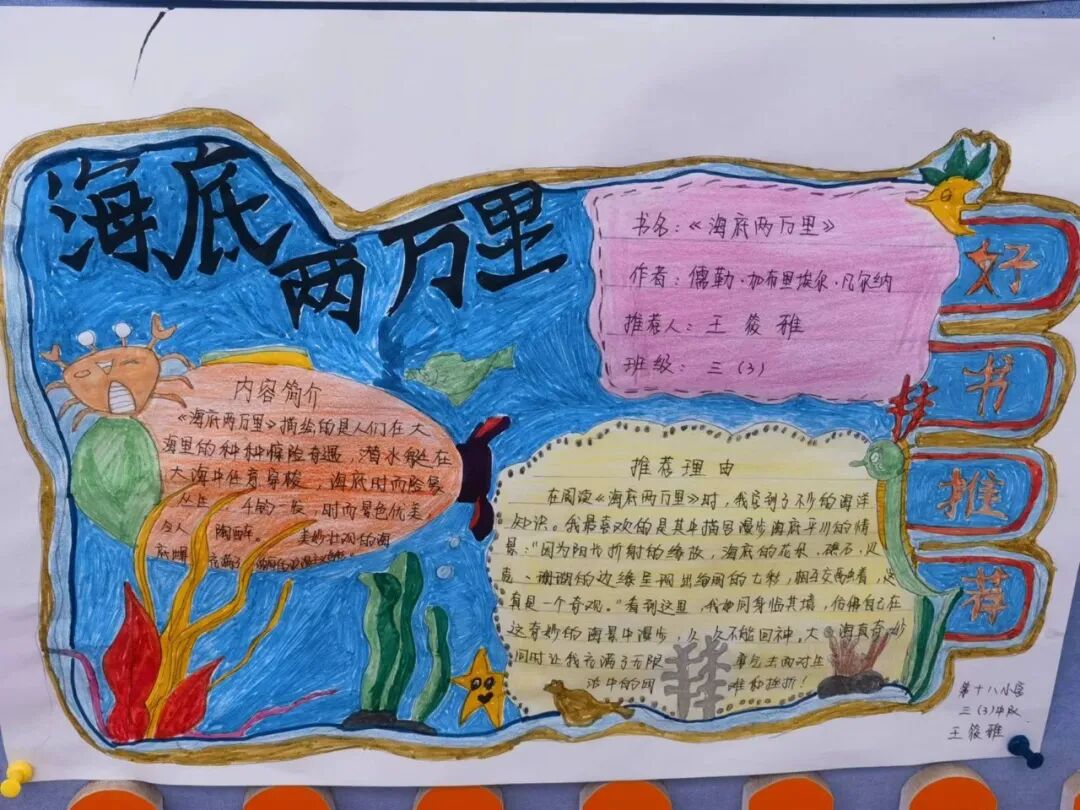 海底两万里
书名:《海底两万里》
作者:儒勒·加布里埃尔·凡尔纳
推荐人:王筱雅
班级:三(3)
好书推荐
内容简介
《海底两万里》描绘的是人们在大
海里的种种惊险奇遇,潜水艇在
大海中任意穿梭,海底时而险象
丛生、千钧一发,时而景色优美,
令人陶醉。美妙壮观的海
充满了
推荐理由
在阅读《海底两万里》时,我学到了不少的海洋
知识。我最喜欢的是其中描写漫步海底平川的情
景:"因为阳光折射的缘故,海底的花朵、礁石、贝
壳、珊瑚的边缘呈现出绚丽的七彩,相互交叠着,这
真是一个奇观。"看到这里,我如同身临其境,仿佛自己在
这奇妙的海景中漫步,久久不能回神,大海真奇妙
同时让我充满了无限勇气去面对生
活中的困难和挫折!
第十八小学
三(3)中队
王筱雅